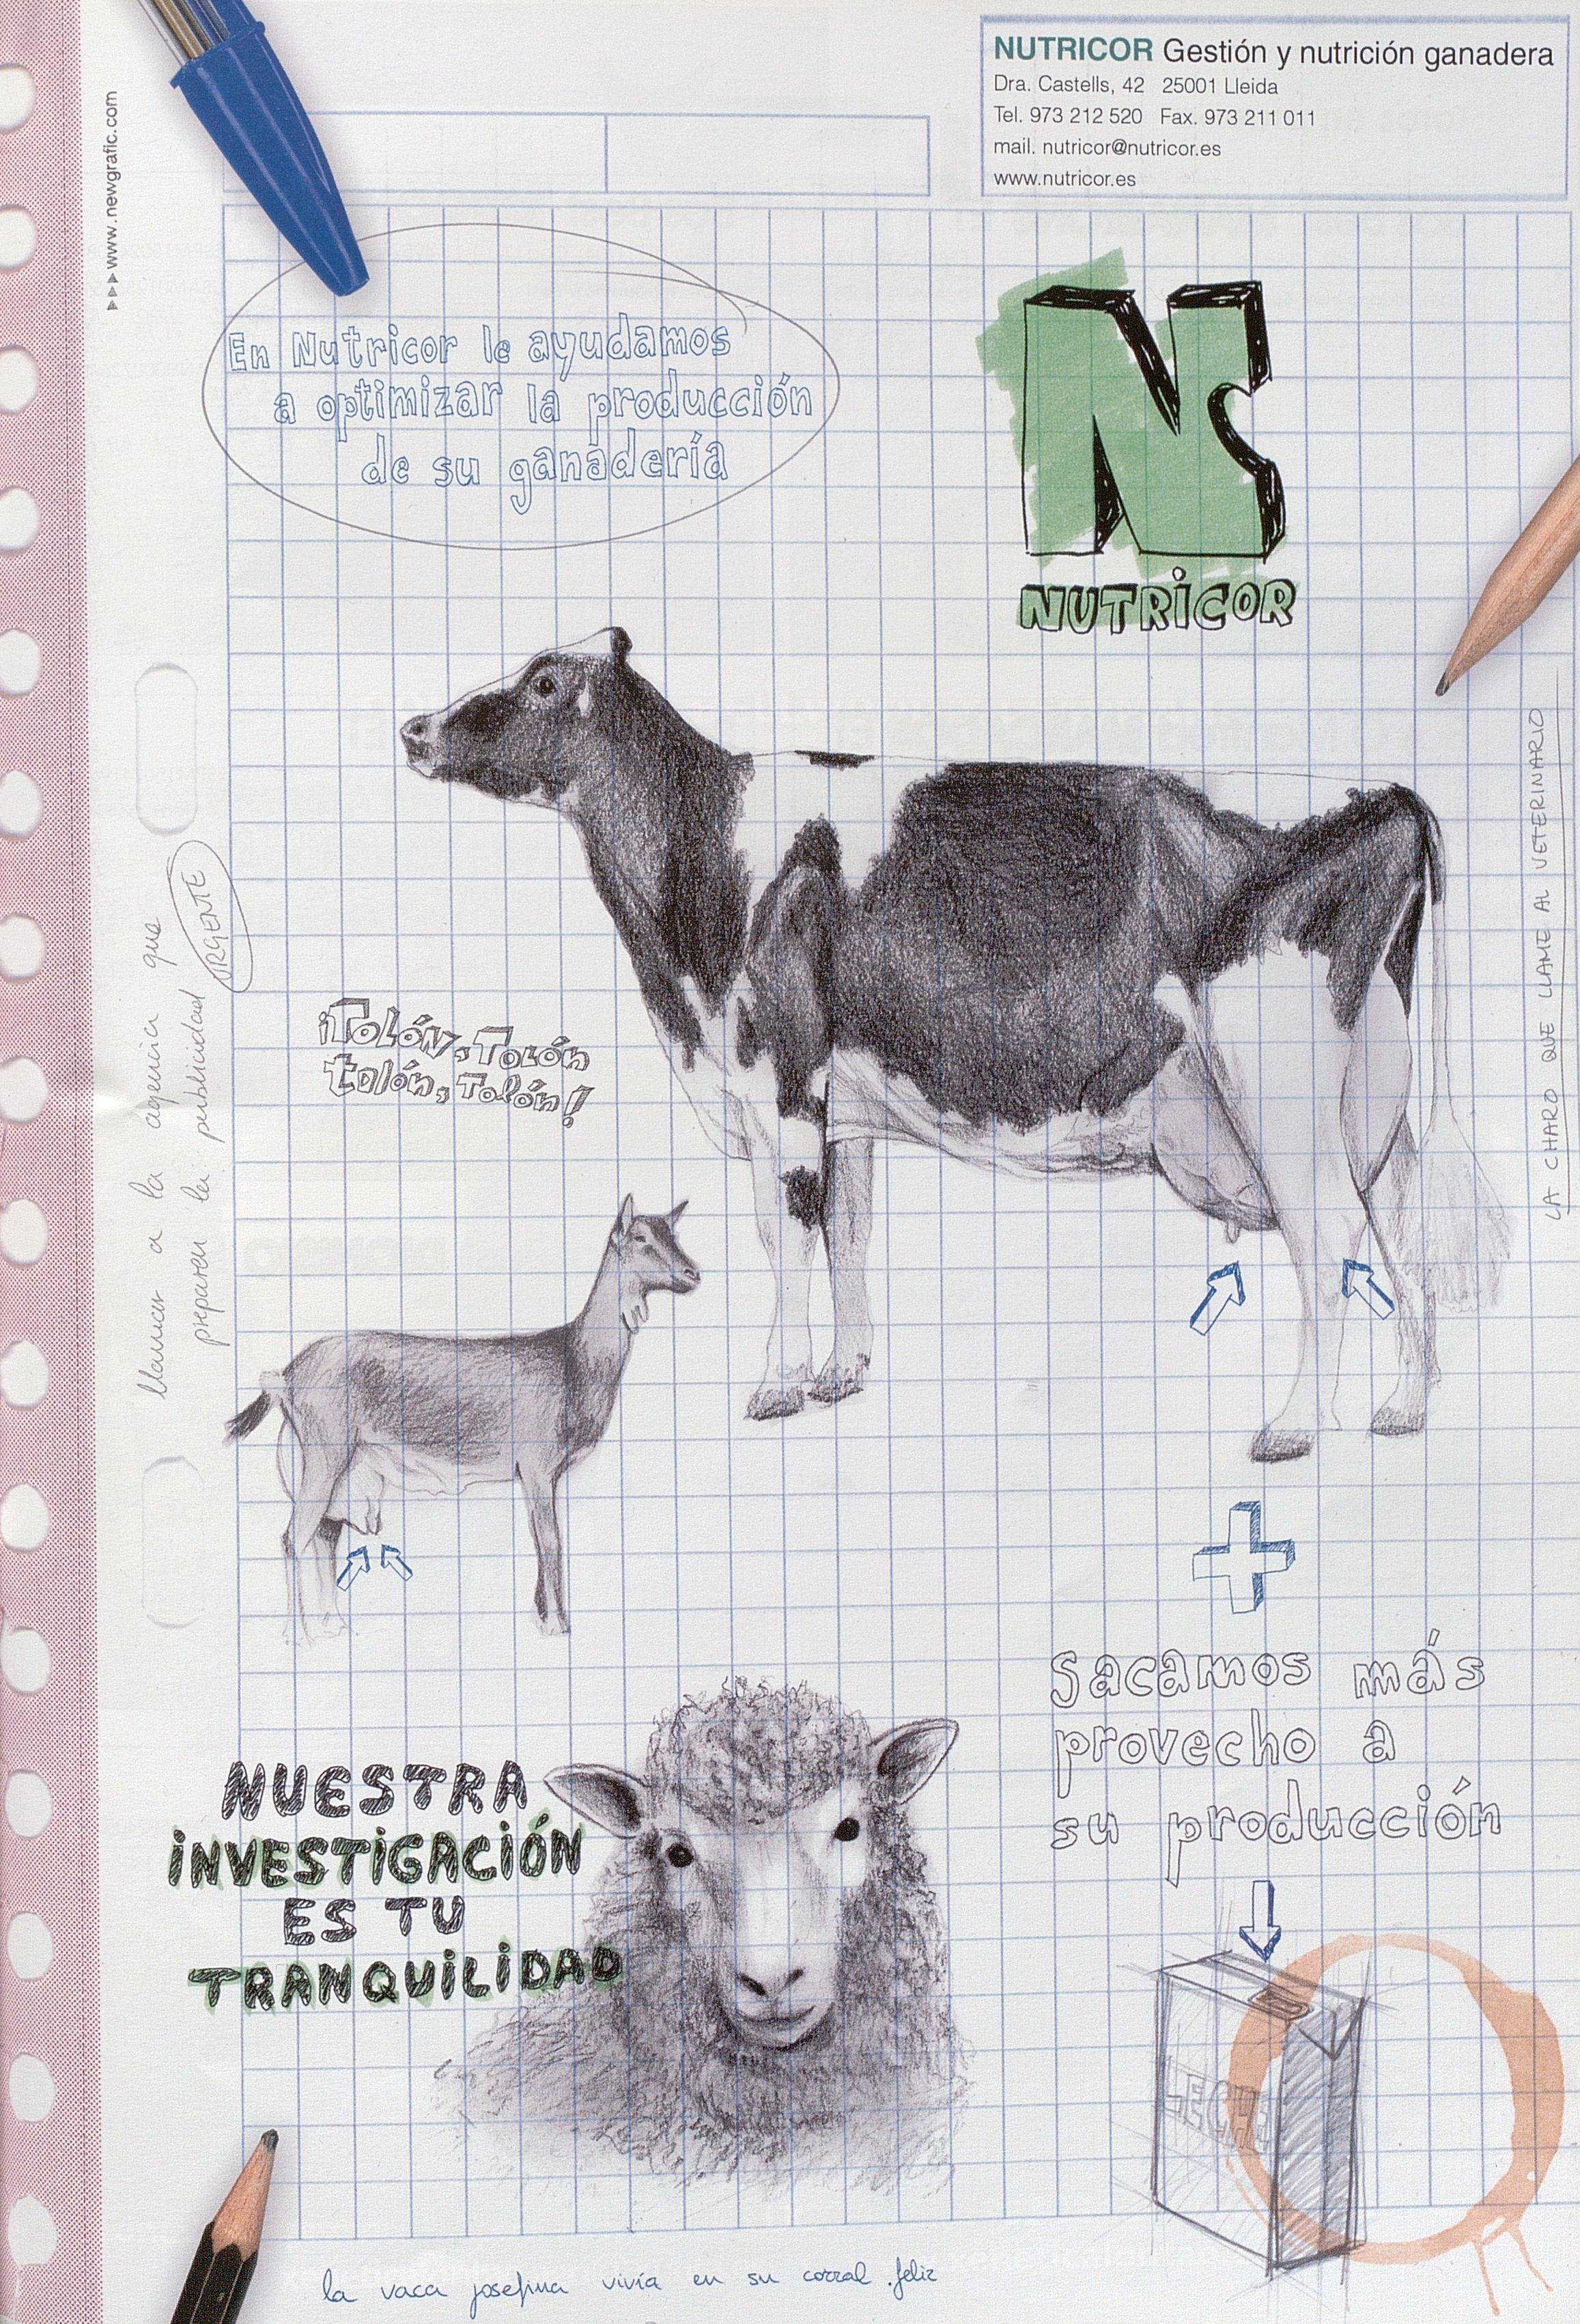 NUTRICOR Gestión y nutrición ganadera
Dra. Castells, 42 25001 Lleida
Tel. 973 212 520 Fax. 973 211 011
mail. nutricor@nutricor.es
www.nutricor.es
www.newgrafic.com
En Nutricor le ayudamos
a optimizar la producción
de su ganadería
N
NUTRICOR
LA CHARO QUE LLAME AL VETERINARIO
URGENTE
llamar a la agencia que
preparen la publicidad
¡Tolón, Tolón
tolón, Tolón!
+
Sacamos más
provecho a
su producción
NUESTRA
iNVESTiGACiÓN
ES TU
TRANQUiLiDAD
LECHE
la vaca josefina vivía en su corral feliz